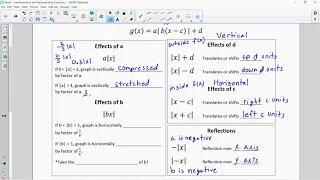 g(x) = a| b(x − c) | + d
Vertical
outside f(x)
Effects of a
a|x|
If 0 < |a| < 1, graph is vertically compressed
by factor of a.
If |a| > 1, graph is vertically stretched
by factor of a.
Effects of b
|bx|
If 0 < |b| < 1, graph is horizontally
by factor of 1/b.
If |b| > 1, graph is horizontally
by factor of 1/b.
*Take the of b!
Effects of d
|x| + d Translates or shifts up d units
|x| − d Translates or shifts down d units
inside f(x) Horizontal
Effects of c
|x − c| Translates or shifts right c units
|x + c| Translates or shifts left c units
Reflections
a is negative
−|x| Reflection over x axis
|−x| Reflection over y axis
b is negative